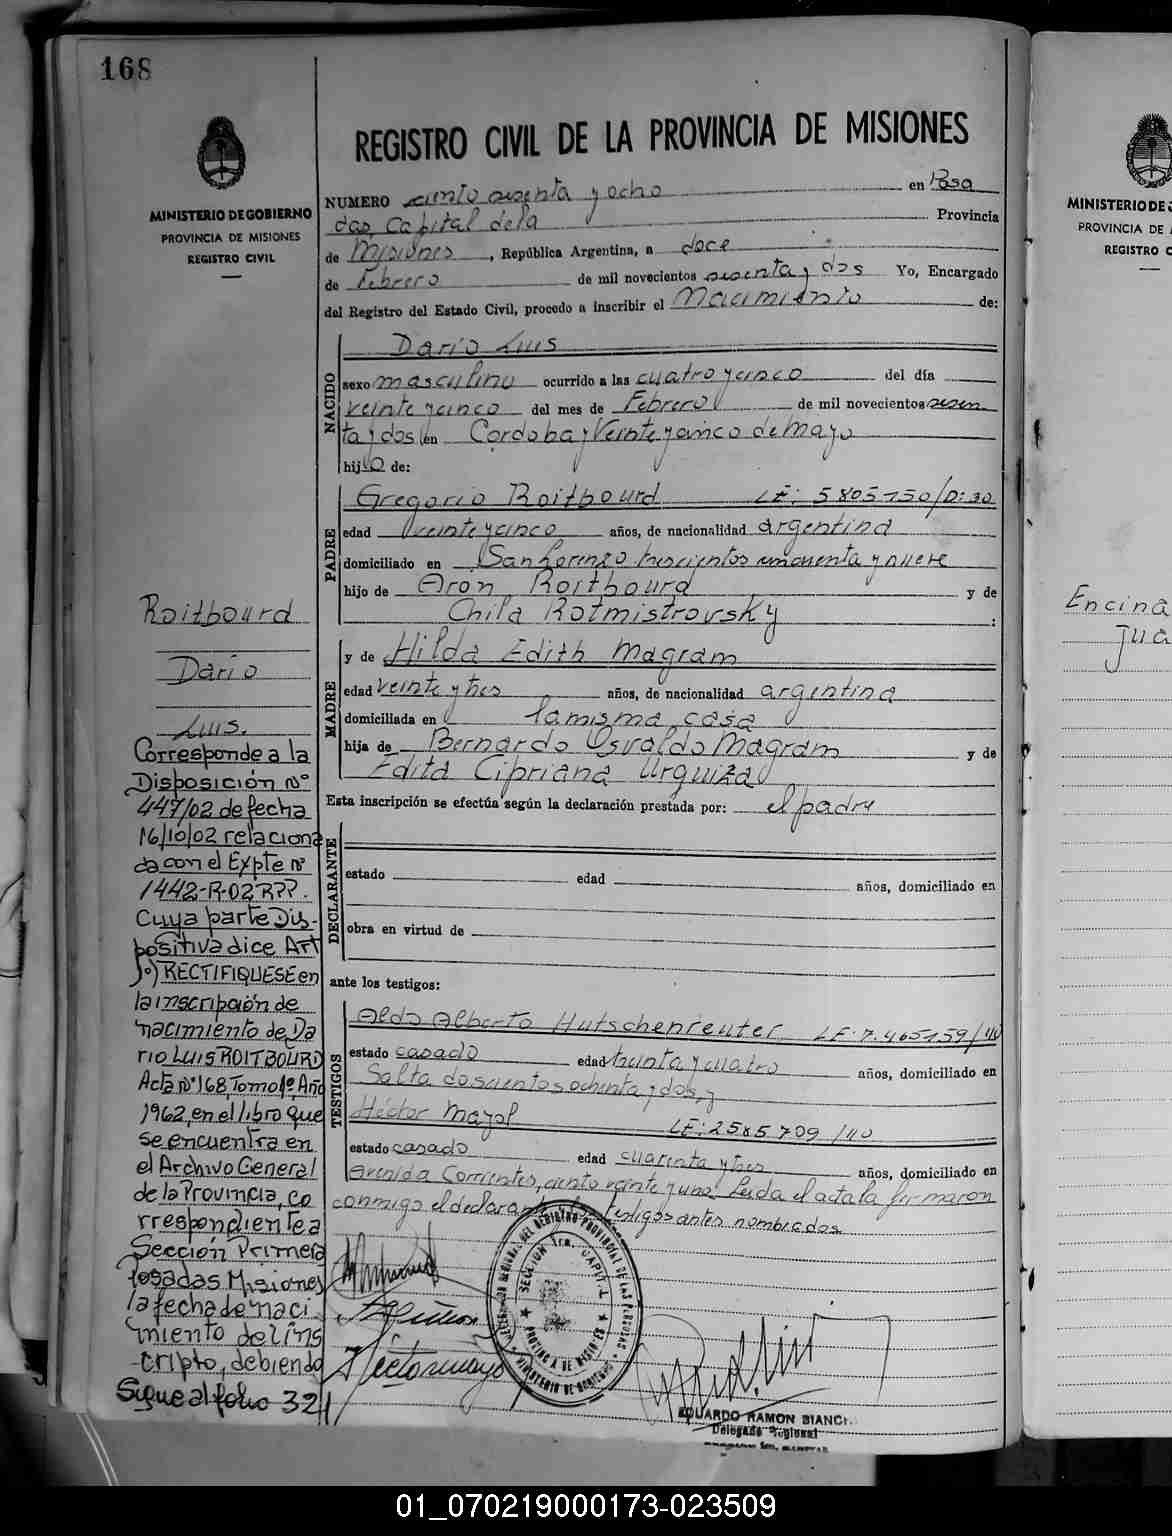 168
MINISTERIO DE GOBIERNO
PROVINCIA DE MISIONES
REGISTRO CIVIL
REGISTRO CIVIL DE LA PROVINCIA DE MISIONES
NUMERO ciento sesenta y ocho en Posa
das, Capital de la Provincia
de Misiones, República Argentina, a doce
de Febrero de mil novecientos sesenta y dos Yo, Encargado
del Registro del Estado Civil, procedo a inscribir el Nacimiento de:
NACIDO
Dario Luis
sexo masculino ocurrido a las cuatro y cinco del día
veinte y cinco del mes de Febrero de mil novecientos sesen
ta y dos en Cordoba y Veinte y cinco de Mayo
hijo de:
PADRE
Gregorio Roitbourd LE: 5805750/D:30
edad veinte y cinco años, de nacionalidad argentina
domiciliado en San Lorenzo trescientos cincuenta y nueve
hijo de Aron Roitbourd y de
Chila Rotmistrovsky :
MADRE
y de Hilda Edith Magram
edad veinte y tres años, de nacionalidad argentina
domiciliada en la misma casa
hija de Bernardo Osvaldo Magram y de
Edita Cipriana Urquiza
Esta inscripción se efectúa según la declaración prestada por: el padre
DECLARANTE
estado edad años, domiciliado en
obra en virtud de
ante los testigos:
TESTIGOS
Aldo Alberto Hutschenreuter LE: 7.465159/40
estado casado edad treinta y cuatro años, domiciliado en
Salta doscientos ochenta y dos, y
Héctor Mayol LE: 2585709/40
estado casado edad cuarenta y tres años, domiciliado en
Avenida Corrientes, ciento veinte y uno. Leida el acta la firmaron
conmigo el declarante testigos antes nombrados
Roitbourd
Dario
Luis.
Corresponde a la
Disposición Nº
447/02 de fecha
16/10/02 relaciona
da con el Expte Nº
1442-R-02 RPP.
Cuya parte Dis-
positiva dice Art
1º) RECTIFIQUESE en
la inscripción de
nacimiento de Da
rio LUIS ROITBOURD
Acta Nº 168, Tomo 1º, Año
1962, en el libro que
se encuentra en
el Archivo General
de la Provincia, co
rrespondiente a
Sección Primera
Posadas Misiones
la fecha de naci
miento del ins
cripto, debiendo
Sigue al folio 321
Hector Mayol
SECCION 1ra. CAPITAL
PROVINCIA DE MISIONES
MINISTERIO DE GOBIERNO
EDUARDO RAMON BIANCHI
Delegado Regional
MINISTERIO DE
PROVINCIA DE
REGISTRO C
Encina
Jua
01_070219000173-023509